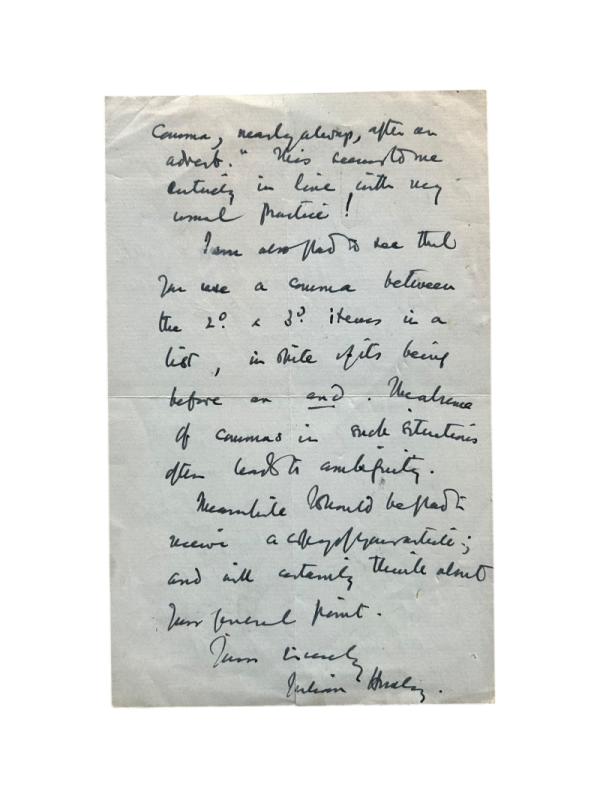 comma, nearly always, after an
adverb." This seems to me
entirely in line with my
usual practice!
I am also glad to see that
you use a comma between
the 2º & 3º items in a
list, in spite of its being
before an and. The absence
of commas in such situations
often leads to ambiguity.
Meanwhile I should be glad to
receive a copy of your article;
and will certainly think about
your general point.
Yours sincerely
Julian Huxley.